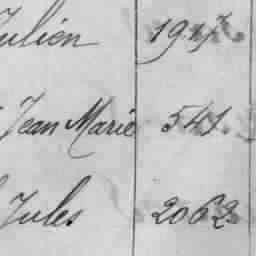 Julien 1947
Jean Marie 541
Jules 2062